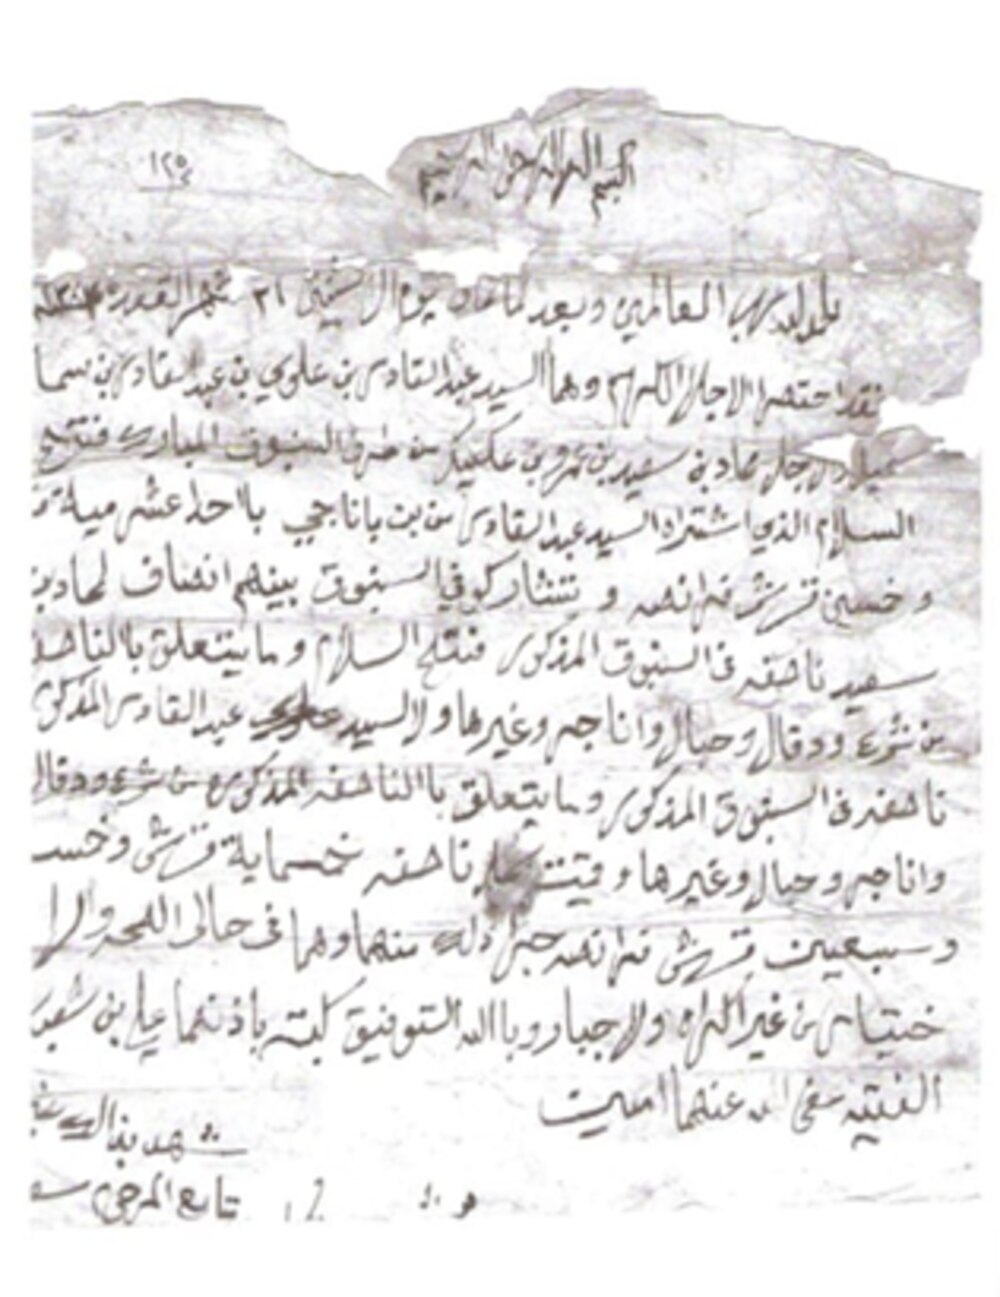 ١٢٥
بسم الله الرحمن الرحيم
لله رب العالمين وبعد لما كان يوم الاثنين ٢١ شهر القعده
فقد احتضرا الاجلا الكرام وهما السيد عبد القادر بن علوي بن عبد القادر بن سما
والاجل عماد بن سعيد بن عمرو بن عكيكر من طرف السنبوق المبارك فتح
السلام الذي اشتراه السيد عبد القادر من بن باناجي بااحد عشر مية
وخمسين قرش فرانصه و يتشاركو في السنبوق بينهم انصاف لعماد بن
سعيد ناصفه في السنبوق المذكور فتح السلام وما يتعلق بالناصفه
من شرع ودقال وحبال واناجر وغيرها ولا السيد عبد القادر المذكور
ناصفه في السنبوق المذكور وما يتعلق باالناصفه المذكوره من شرع ودقال
واناجر وحبال وغيرها وقيمت كل ناصفه خمسماية قرش وخمسه
وسبعين قرش فرانصه جرا ذلك منهما وهما في حالى الصحه والا
ختيار من غير اكراه ولا جبار وباالله التوفيق كتبه باذنهما علي بن سعيد
الفقيه عفى الله عنهما امين
شهد بذالك
تابع المرحوم